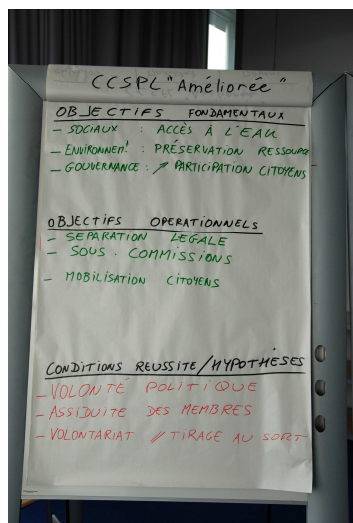 CCSPL "Améliorée"
OBJECTIFS FONDAMENTAUX
- SOCIAUX : ACCÈS À L'EAU
- ENVIRONNEM! : PRÉSERVATION RESSOURCE
- GOUVERNANCE : ↗ PARTICIPATION CITOYENS
OBJECTIFS OPERATIONNELS
- SEPARATION LEGALE
- SOUS-COMMISSIONS
- MOBILISATION CITOYENS
CONDITIONS REUSSITE/HYPOTHÈSES
- VOLONTÉ POLITIQUE
- ASSIDUITE DES MEMBRES
- VOLONTARIAT // TIRAGE AU SORT